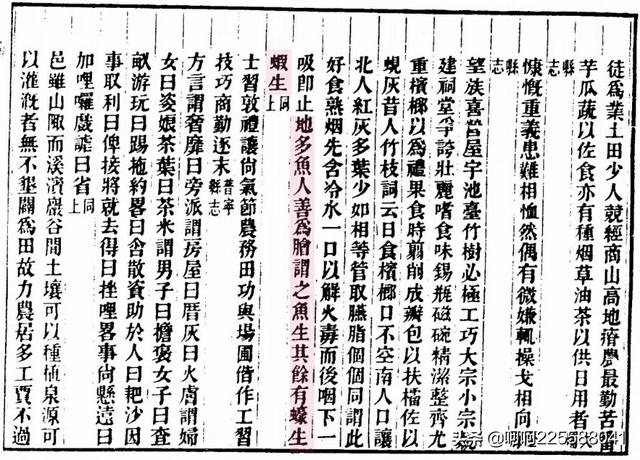 徒爲業土田少人競經商山高地瘠農最勤苦
芋瓜蔬以佐食亦有種烟草油茶以供日用者
縣志
慷慨重義患難相恤然偶有微嫌輒操戈相向
縣志
望族喜營屋宇池臺竹樹必極工巧大宗小宗
建祠堂爭誇壯麗嗜食味錫瓶磁碗精潔整齊尤
重檳榔以爲禮果食時剪削成瓣包以扶櫺佐以
蜆灰昔人竹枝詞云日食檳榔口不空南人口讓
北人紅灰多葉少如相等管取臙脂個個同謂此
好食熟烟先含冷水一口以解火毒而後咽下一
吸卽止地多魚人善爲膾謂之魚生其餘有蠔生
蝦生同上
士習敦禮讓尙氣節農務田功與場圃偕作工習
技巧商勤逐末普寧縣志
方言謂奢靡曰旁派謂房屋曰厝灰曰火膚謂婦
女曰姿娘茶葉曰茶米謂男子曰擔褒女子曰査
畝游玩曰踢拖約畧曰舍散資助於人曰耙沙因
事取利曰俾接將就去得曰挫哩畧事尙懸遠曰
加哩囉戲謔曰省同上
邑雖山陬而溪濱巖谷間土壤可以種植泉源可
以灌漑者無不墾闢爲田故力農居多工賈不過
头条 @呵呵225588041